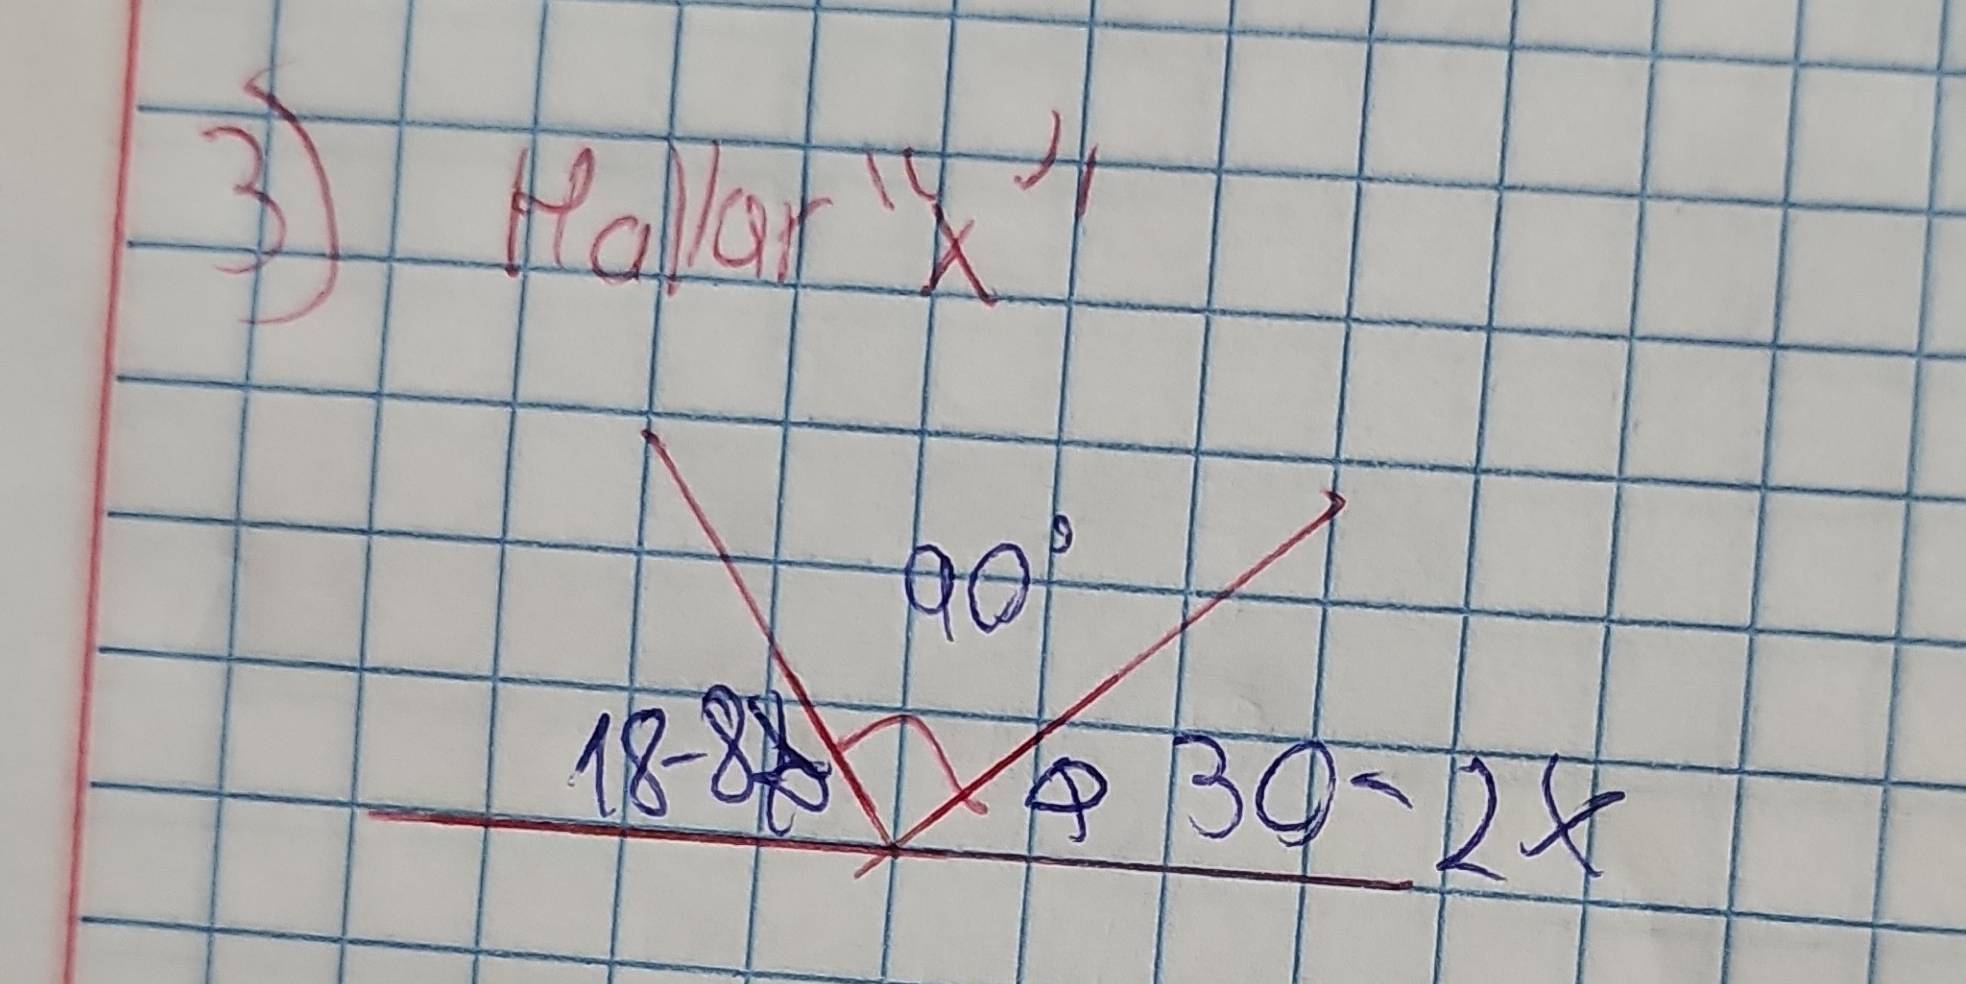 3) Hallar "x"
90°
18-8x 30-2x